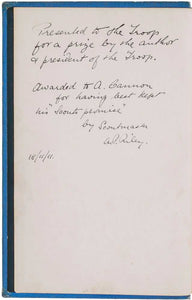 Presented to the Troop
for a prize by the author
& president of the Troop.
Awarded to A. Cannon
for having best kept
his "Scouts promise"
by Scoutmaster
Riley.
18/11/11.